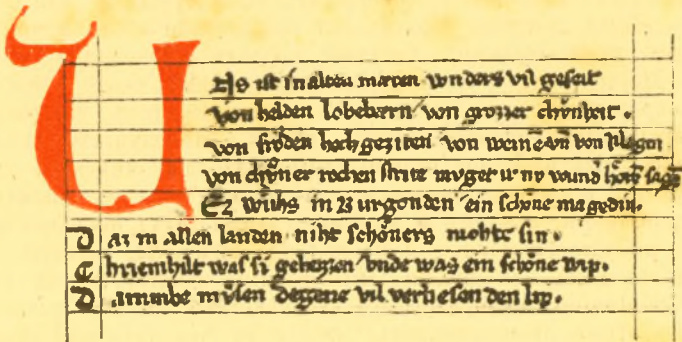 UNS ist in alten mæren wnders vil geseit
von helden lobebærn von grozzer chůnheit.
von frőden hochgeziten von weinē vñ von klagen
von chůner rechen strite muget ir nv wund̾ hőrē sagē
Ez wůhs in Burgonden ein schőne magedin.
Daz in allen landen niht schőners mohte sin.
Chriemhilt was si geheizen vnde was ein schőne wip.
Darumbe můsen degene vil verliesen den lip.